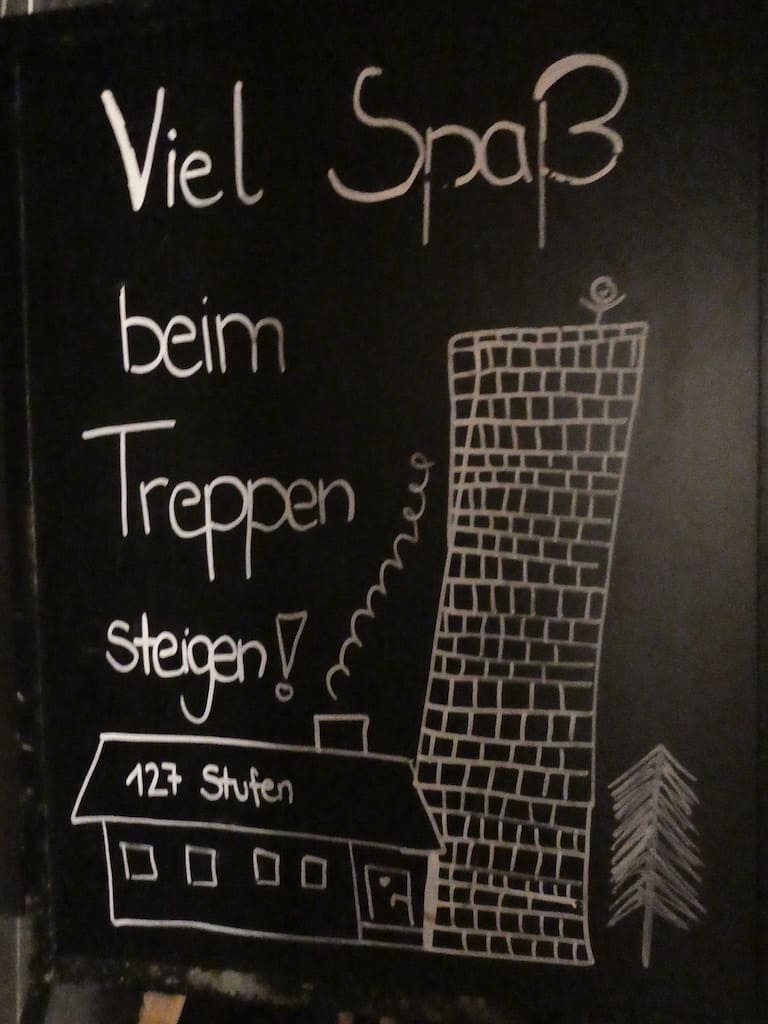 Viel Spaß
beim
Treppen
steigen!
127 Stufen